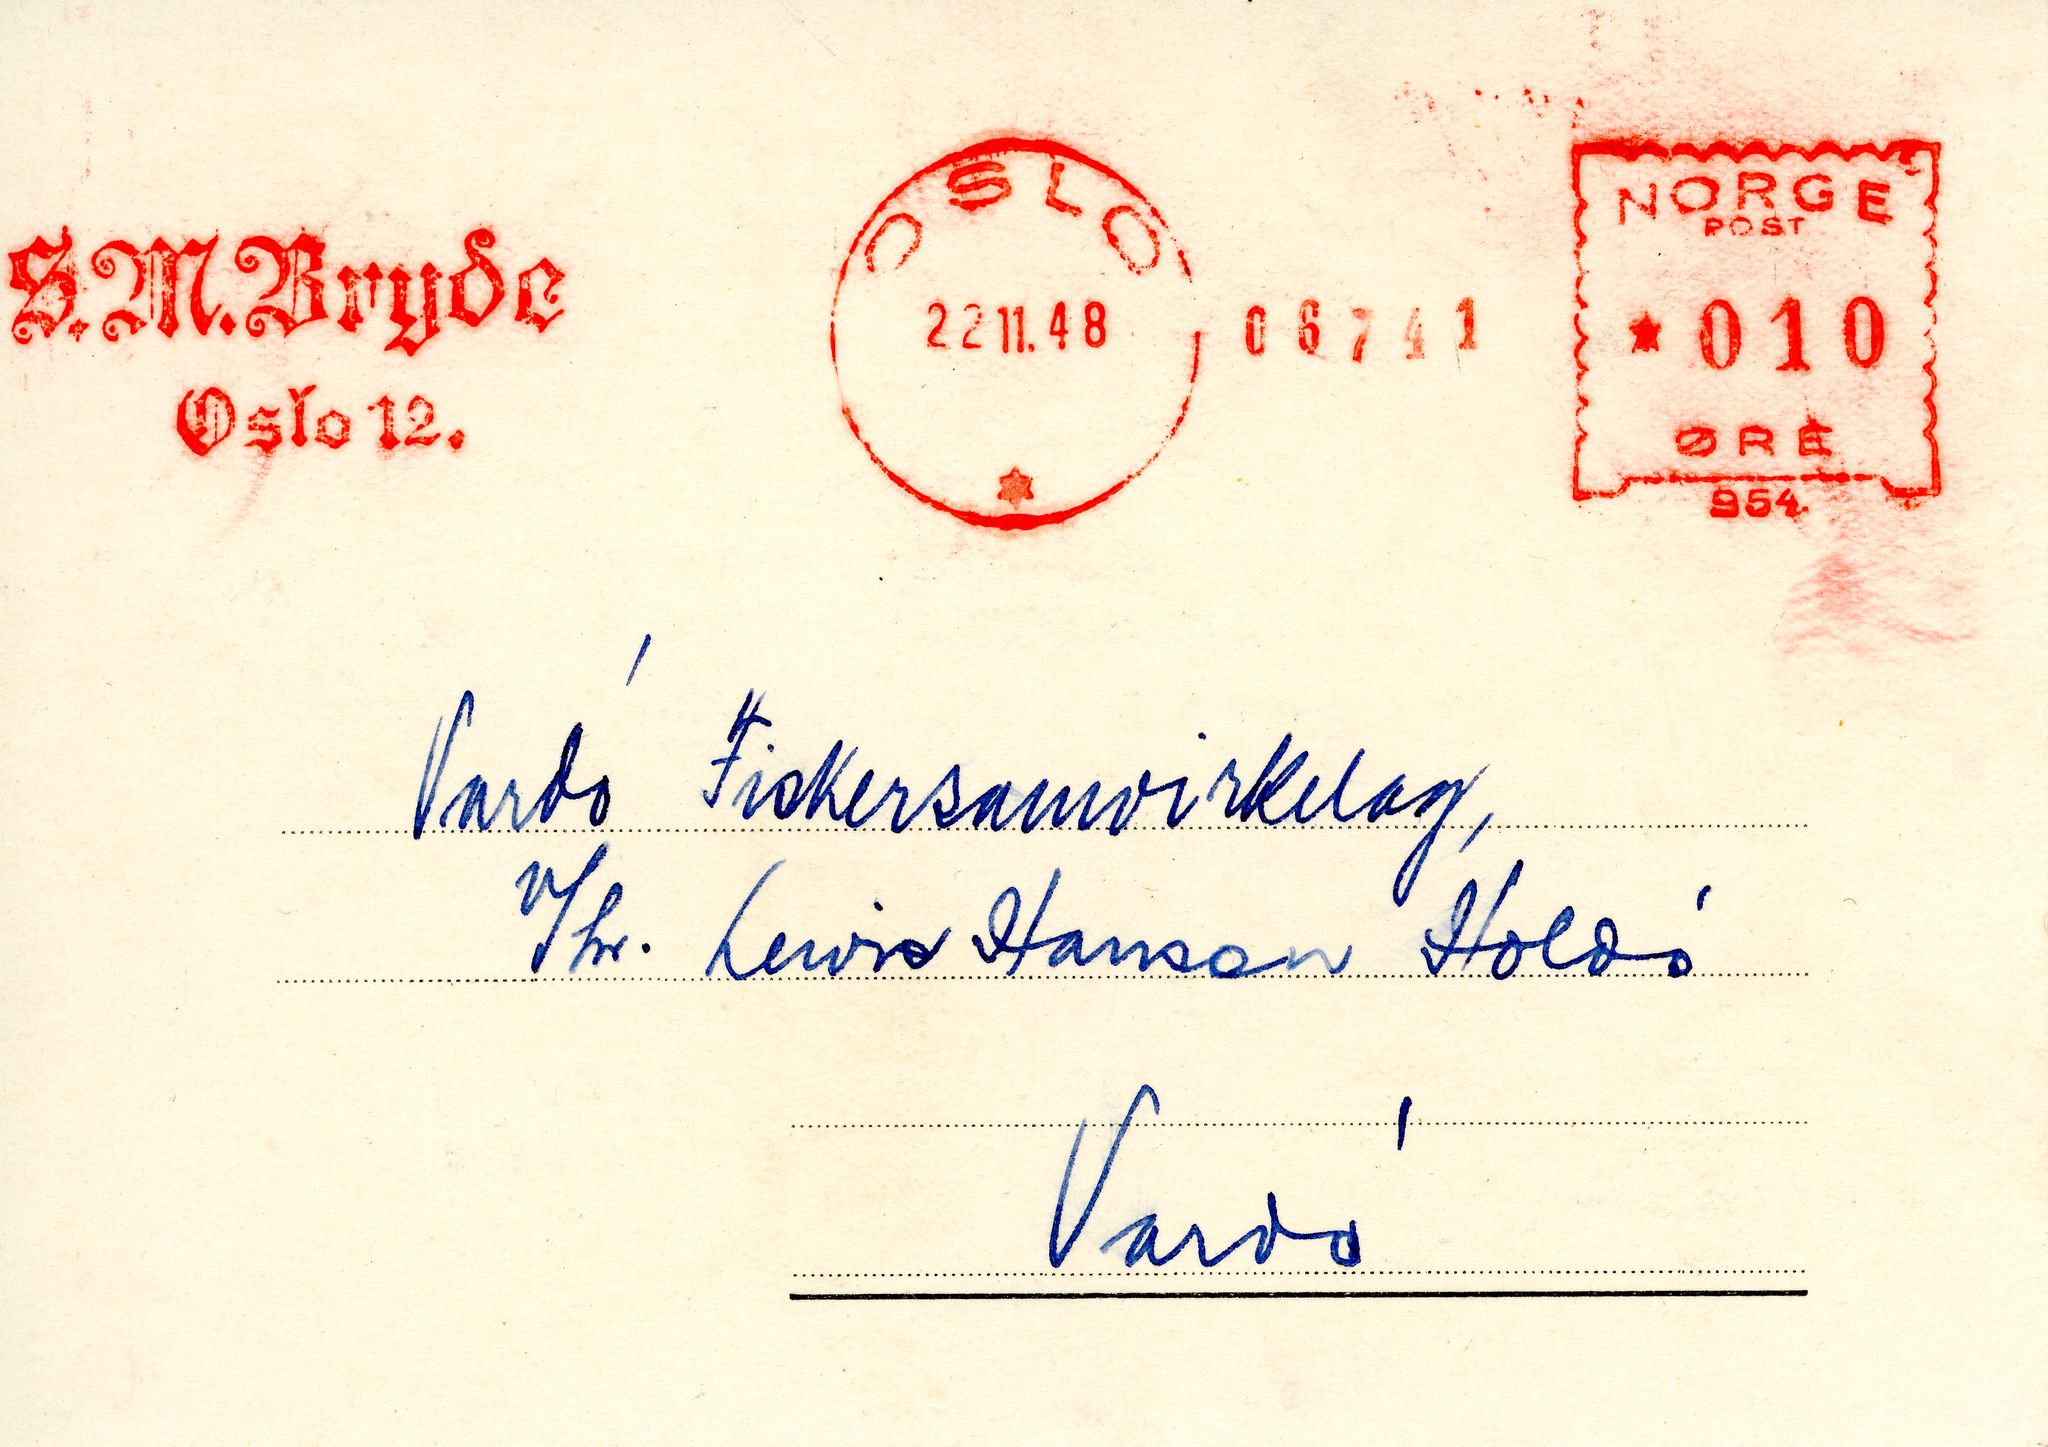 S.M. Bryde
Oslo 12.
OSLO
22 11. 48
06741
NORGE
POST
* 010
ØRE
954.
Vardó Fiskersamvirkelag,
v/hr. Lewis Hanson Holdó
Vardó